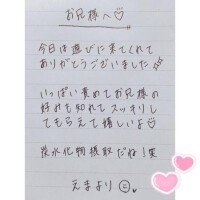 お兄様へ♡
今日は遊びに来てくれて
ありがとうございました
いっぱい責めてお兄様の
好みも知れてスッキリし
てもらえて嬉しいよ♡
炭水化物摂取だね!笑
えまより